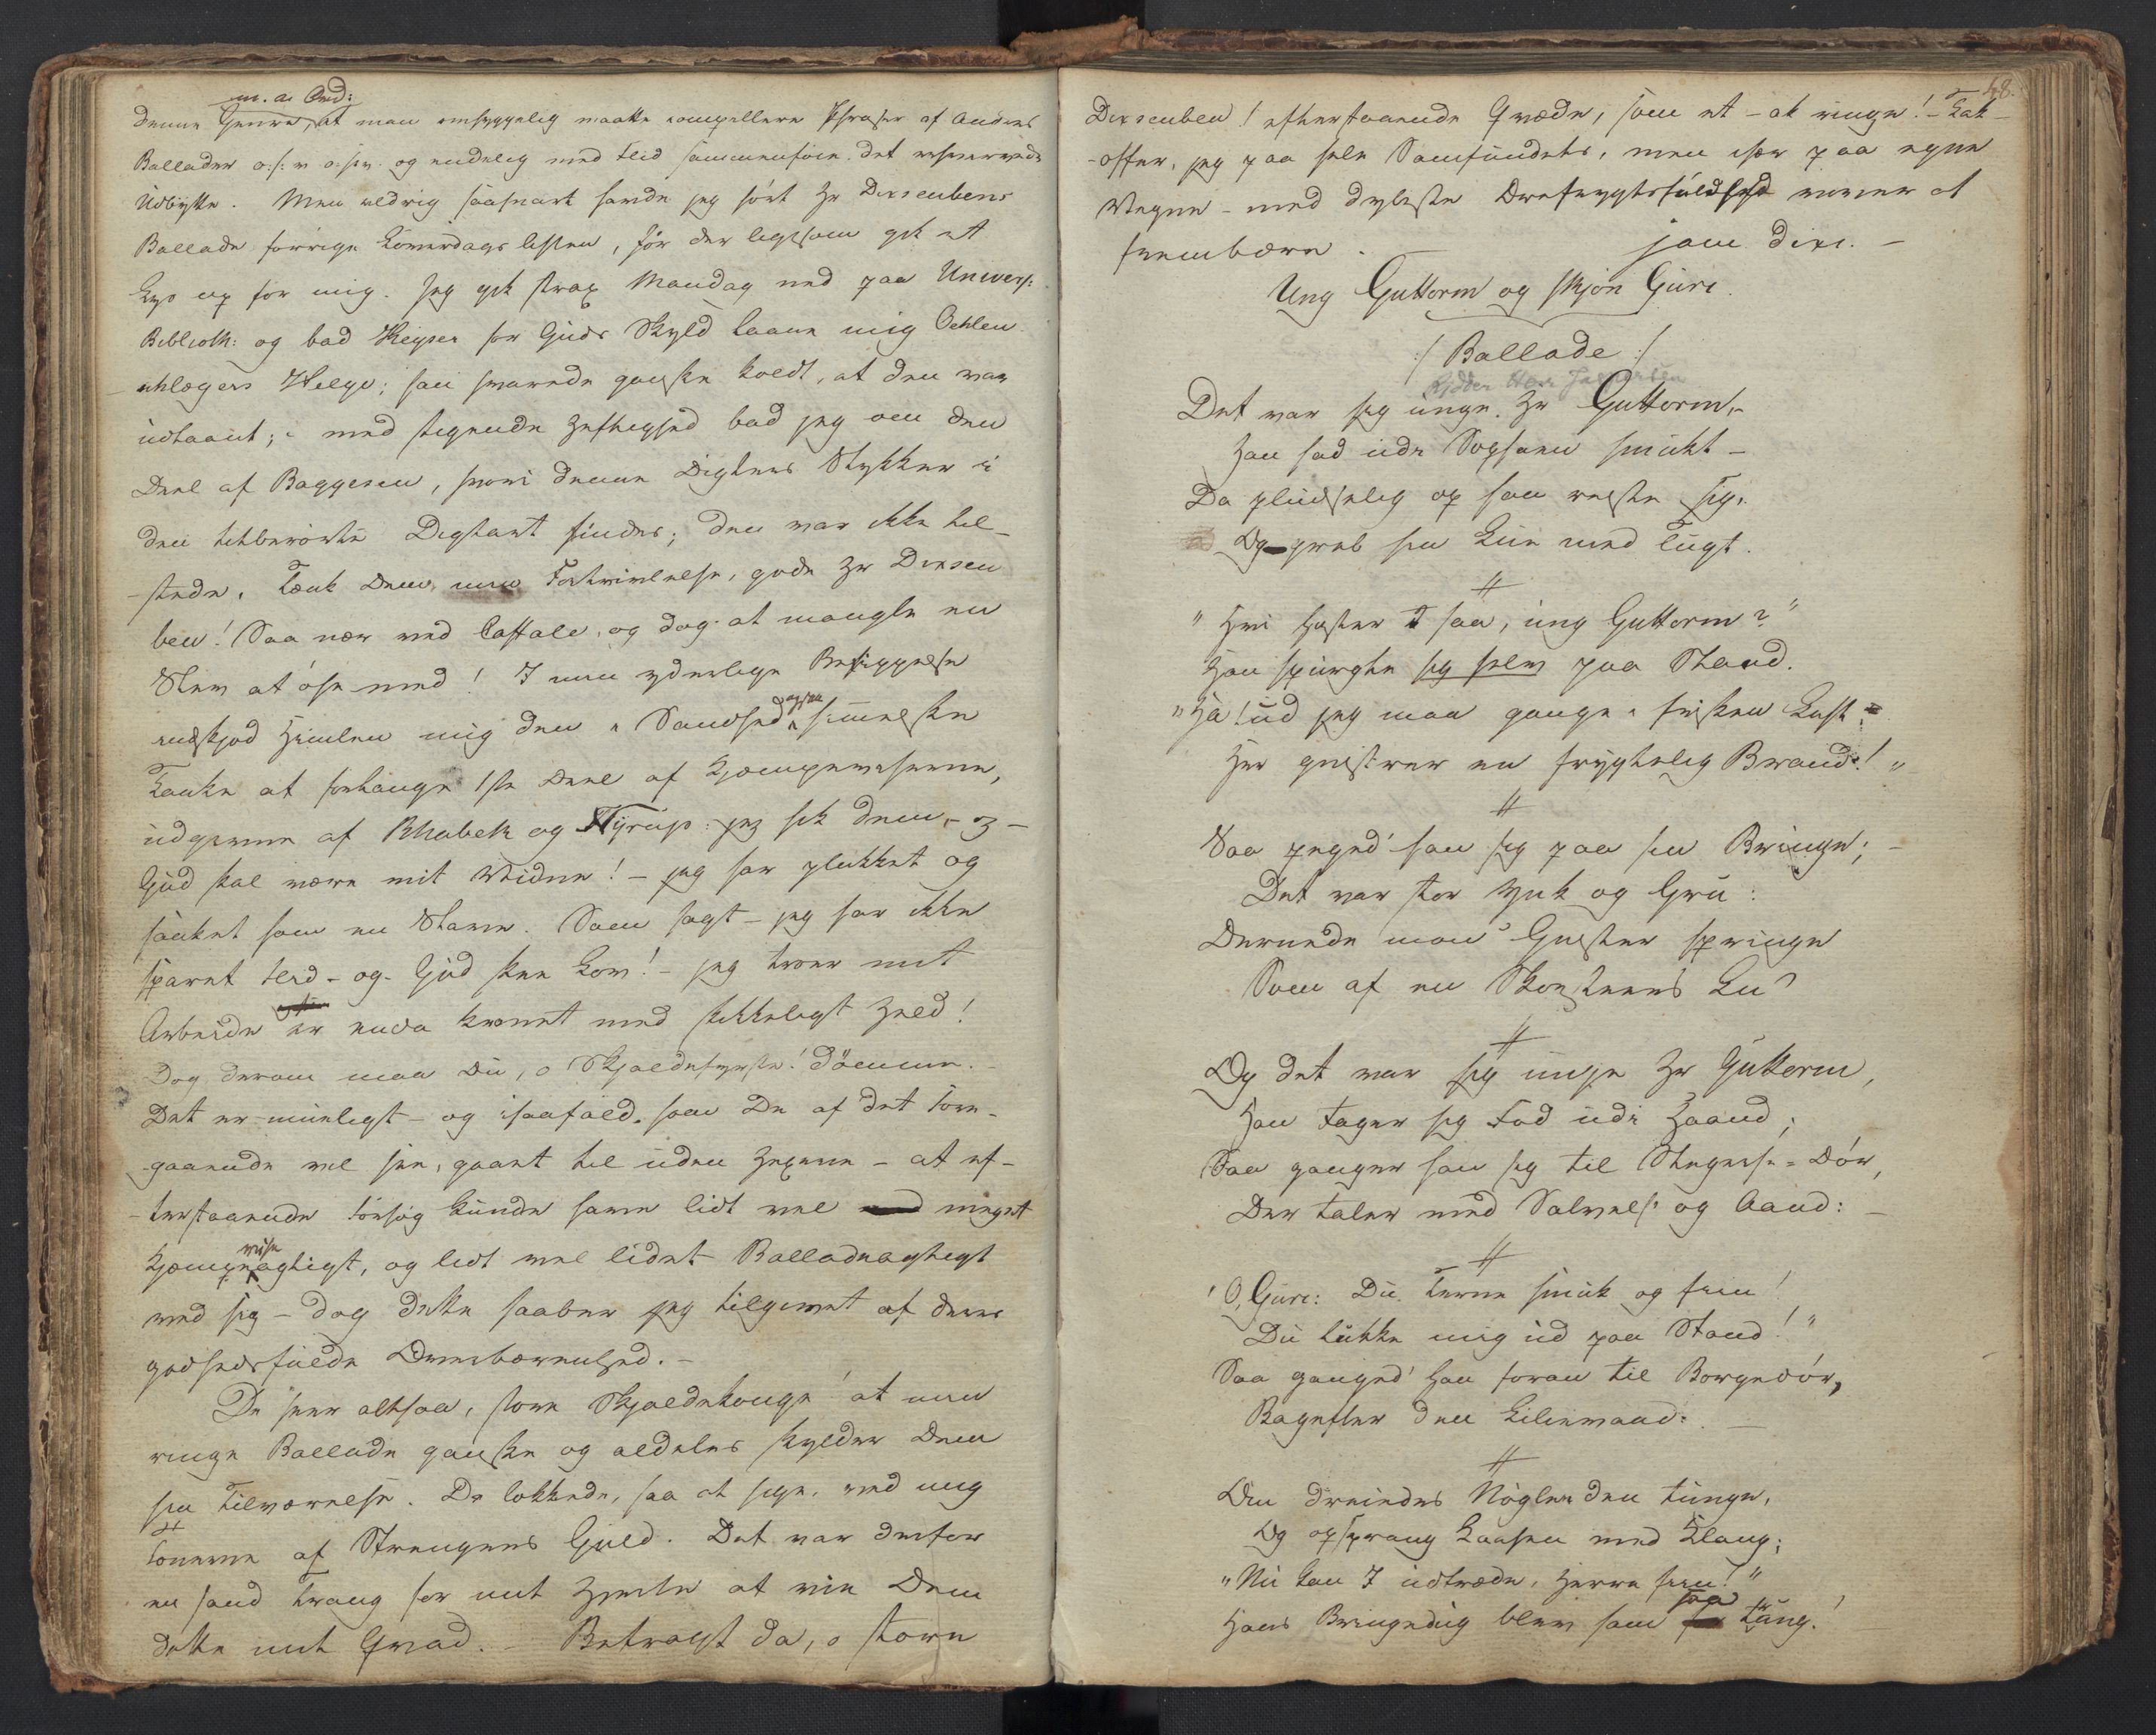 m. a. Ord:
denne Genre, at man omhyggelig maatte compellere Phraser af Andres
Ballader o: s: v: og endelig med Flid sammenføie det erhvervede
Udbytte. Men aldrig saasnart havde jeg hørt Hr Dixenbens
Ballade forrige Löverdags Aften, før der ligesom gik et
Lys op for mig. Jeg gik strax Mandag ned paa Univers:
Biblioth: og bad Keyser for Guds Skyld laane mig Oehlen-
schlægers Helge; han svarede ganske koldt, at den var
udlaant; med stigende Heftighed bad jeg om den
Deel af Baggesen, hvori denne Digters Stykker i
den Digtart findes; den var ikke til-
stede. Tænk Dem min Fortvivlelse, gode Hr Dixen
ben! Saa nær ved Castale, og dog at mangle en
Skee at öse med! I min yderlige
indskjød Himlen mig den Sandhed ogsaa himmelske
Tanke at forlange 1ste Deel af Kjæmpeviserne,
udgivne af Rhabek og Nyrup: jeg fik dem, - og -
Gud skal være mit Vidne! - jeg har plukket og
sanket som en Stær. Som sagt - jeg har ikke
sparet Flid - og - Gud skee Lov! - jeg troer mit
Arbeide er endda kronet med skikkeligt Held!
Dog derom maa Du, o Skjaldefyrste! dömme. -
Det er mueligt - og isaafald, som De af det fore-
gaaende vel seer, gaaet til uden Hexerie - at ef-
terstaaende Forsøg kunde have lidt vel meget
Kjæmpeviseagtigt, og lidt vel lidet Balladeagtigt
ved sig - dog dette haaber jeg tilgivet af deres
godhedsfulde Overbærenhed. -
De seer altsaa, store Skjaldekonge! at min
ringe Ballade ganske og aldeles skylder Dem
sin Tilværelse. De lokkede, saa at sige, ved mig
Tonerne af Strengens Guld. Det var derfor
en sand Trang for mit Hjerte at vie Dem
dette mit Qvad. - Betragt da, o store
48.
Dixenben! efterstaaende Qvæde, som et - ak ringe! - Tak-
-offer, jeg paa hele Samfundets, men især paa egne
Vegne - med dybeste Ærefrygtsfuldhed vover at
frembære. jam dixi. -
Ung Guttorm og skjön Guri.
:/ Ballade :/
Ridder Herr
Det var sig unge Hr Guttorm,
Han sad udi Sophaen smukt -
Da pludselig op han reiste sig,
Og greb sin Lue med Lugt.
"Hvi haster I saa, ung Guttorm?"
Han spurgte sig selv paa Stand.
"Ha! ud jeg maa gange i frisken Luft;
Her gnistrer en frygtelig Brand!"
Saa peged' han sig paa sin Bringe; -
Det var stor Ynk og Gru:
Dernede mon' Gnister springe
Som af en Skorsteens Lu'
Og det var sig unge Hr Guttorm,
Han tager sig Fad udi Haand;
Saa ganger han sig til Stegerse-Dör,
Der taler med Salvels' og Aand: -
"O, Guri: Du Terne smuk og fiin!
Du lukke mig ud paa Stand!"
Saa ganged' han foran til Borgedör,
Bagefter den Lilievaand. -
Om dreiedes Nøglen den tunge,
Og opsprang Laasen med Klang;
"Nu kan I udtræde, Herre fiin!"
Hans Bringedug blev ham saa trang!